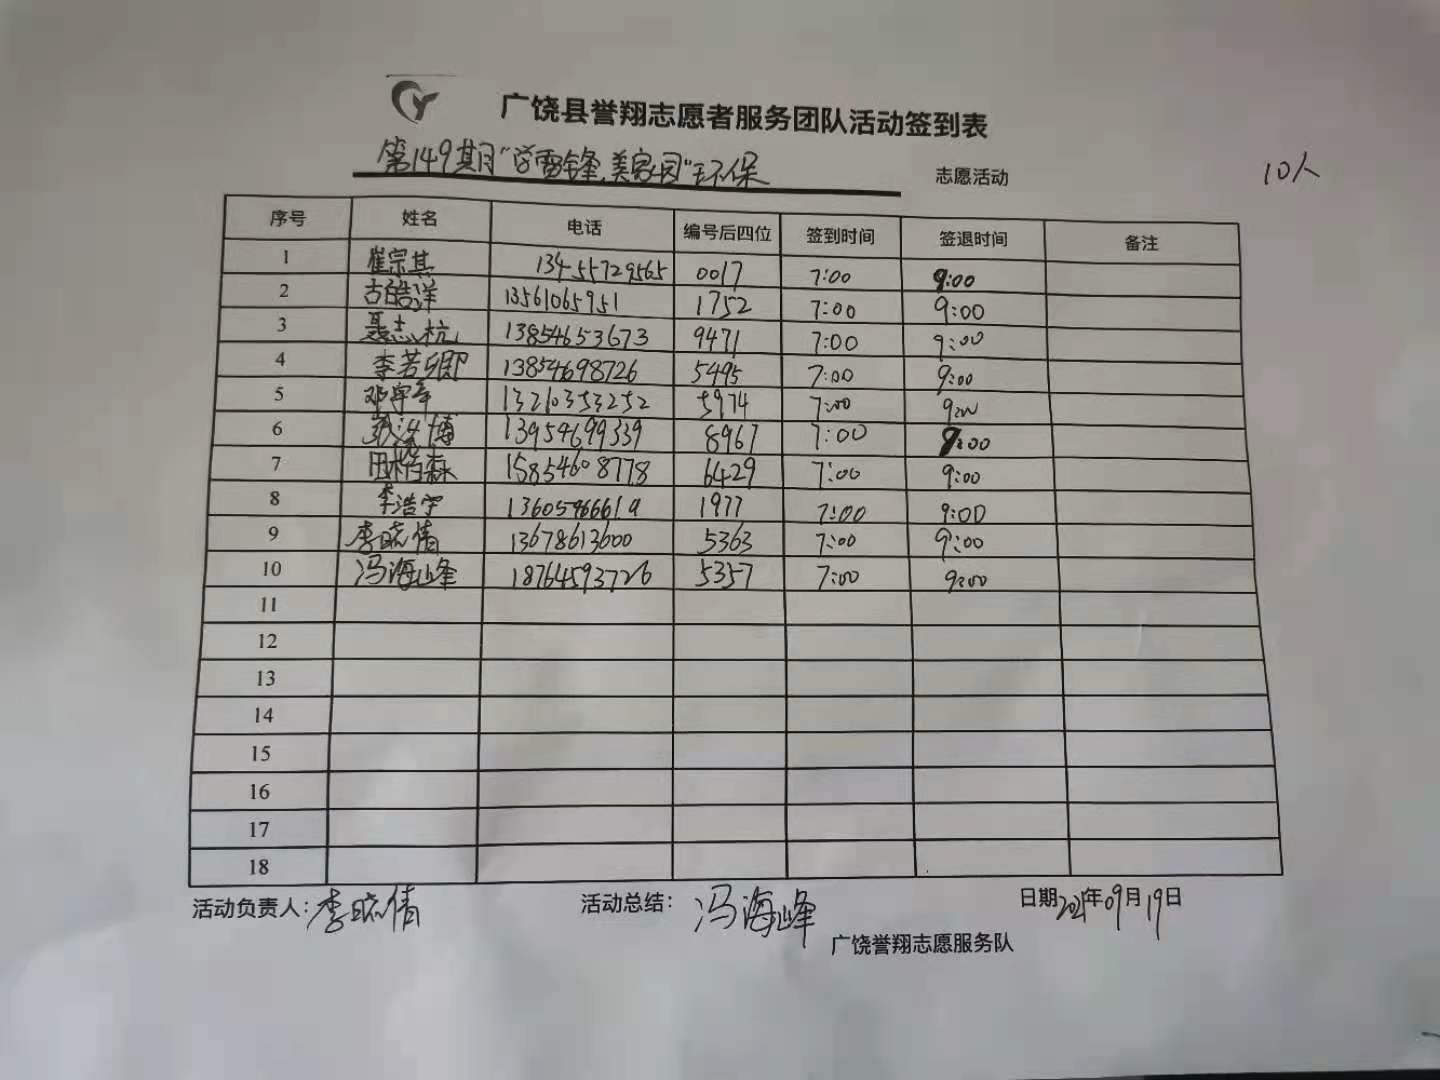 广饶县誉翔志愿者服务团队活动签到表
第149期"学雷锋、美家园"环保 志愿活动 10人
序号 姓名 电话 编号后四位 签到时间 签退时间 备注
1 崔宗其 13455729565 0017 7:00 9:00
2 古皓洋 13561065951 1752 7:00 9:00
3 聂志杭 13854653673 9471 7:00 9:00
4 李若卿 13854698726 5495 7:00 9:00
5 邓宇军 13210353252 5974 7:00 9:00
6 博 13954699339 8967 7:00 9:00
7 田栢森 15854608778 6429 7:00 9:00
8 李浩宇 13605466619 1977 7:00 9:00
9 李晓倩 13678613600 5363 7:00 9:00
10 冯海峰 18764593726 5357 7:00 9:00
11
12
13
14
15
16
17
18
活动负责人:李晓倩 活动总结:冯海峰 日期2021年09月19日
广饶誉翔志愿服务队